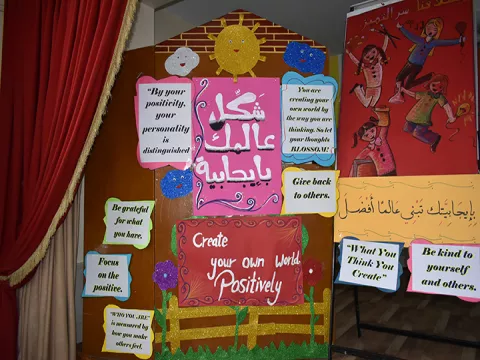 "By your
positivity,
your
personality
is
distinguished
شَكِّل
عالمك
بإيجابية
You are
creating your
own world by
the way you are
thinking. So let
your thoughts
BLOSSOM!
Give back
to others.
بإيجابيتك نبني عالمًا أفضل
Be grateful
for what
you have.
Create
your own World
Positively
Focus
on the
positive.
"What You
Think You
Create"
Be kind to
yourself
and others.
"WHO YOU ARE"
is measured by
how you make
others feel.